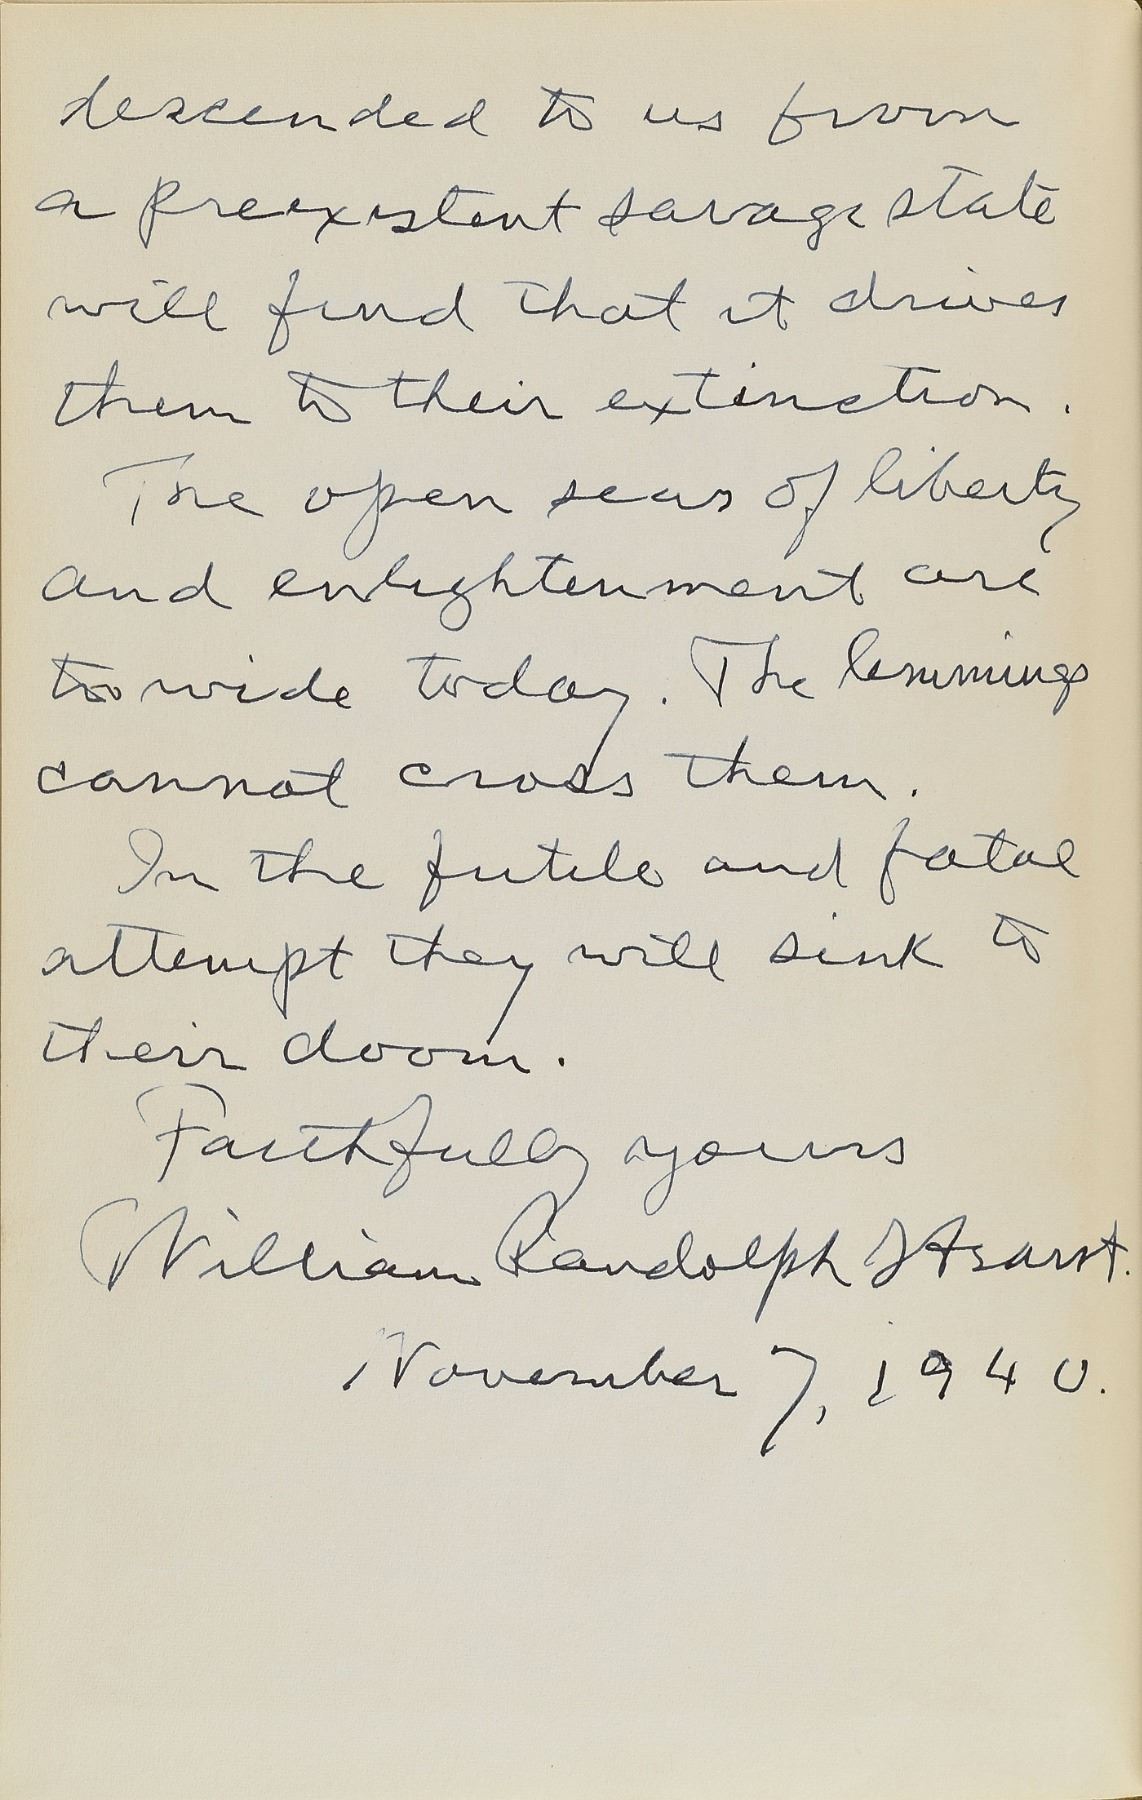 descended to us from
a preexistent savage state
will find that it drives
them to their extinction.
The open seas of liberty
and enlightenment are
too wide today. The lemmings
cannot cross them.
In the futile and fatal
attempt they will sink to
their doom.
Faithfully yours
William Randolph Hearst.
November 7, 1940.